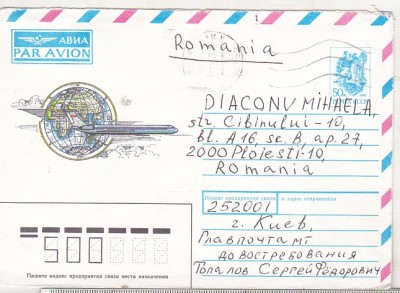 АВИА
PAR AVION
Romania
50к
DIACONU MIHAELA,
str Cibinului-10,
bl. A16, sc. B, ap. 27,
2000 Ploiesti-10,
Romania
Индекс предприятия связи и адрес отправителя
252001
г. Киев,
Главпочтамт
до востребования
Топалов Сергей Фёдорович
500
Пишите индекс предприятия связи места назначения